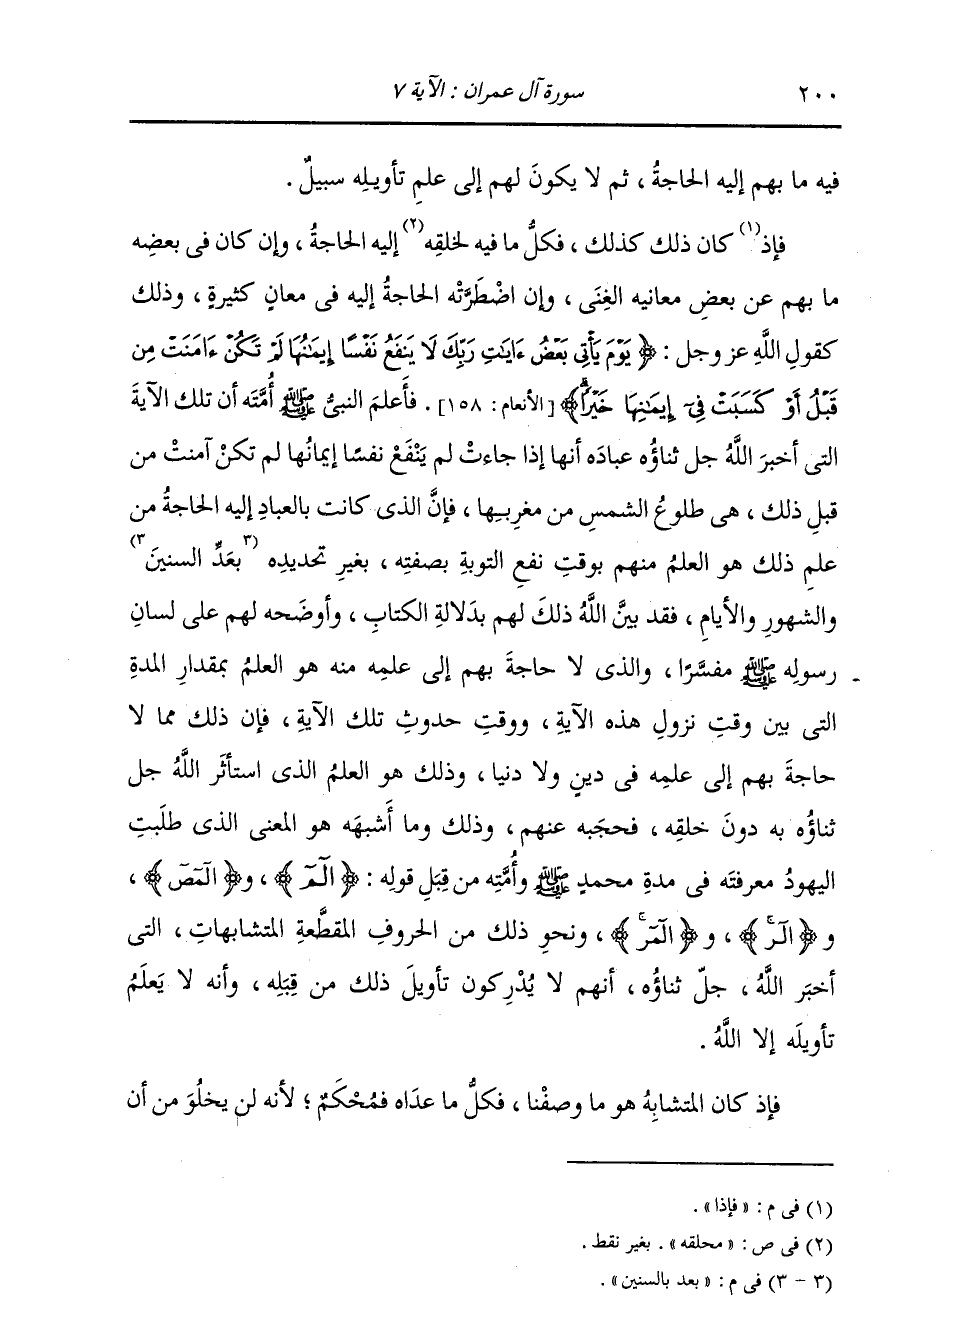 ٢٠٠ سورة آل عمران : الآية ٧
فيه ما بهم إليه الحاجةُ ، ثم لا يكونَ لهم إلى علمِ تأويلِه سبيلٌ .
فإذ(١) كان ذلك كذلك ، فكلُّ ما فيه لخلقِه(٢) إليه الحاجةُ ، وإن كان فى بعضِه
ما بهم عن بعضِ معانيه الغِنَى ، وإن اضْطَرَّتْه الحاجةُ إليه فى معانٍ كثيرةٍ ، وذلك
كقولِ اللَّهِ عز وجل : ﴿ يَوْمَ يَأْتِى بَعْضُ ءَايَـٰتِ رَبِّكَ لَا يَنفَعُ نَفْسًا إِيمَـٰنُهَا لَمْ تَكُنْ ءَامَنَتْ مِن
قَبْلُ أَوْ كَسَبَتْ فِىٓ إِيمَـٰنِهَا خَيْرًاۗ ﴾ [ الأنعام : ١٥٨] . فأَعلمَ النبىُّ ﷺ أُمَّتَه أن تلك الآيةَ
التى أخبرَ اللَّهُ جل ثناؤُه عبادَه أنها إذا جاءتْ لم يَنْفَعْ نفسًا إيمانُها لم تكنْ آمنتْ من
قبلِ ذلك ، هى طلوعُ الشمسِ من مغربِها ، فإنَّ الذى كانت بالعبادِ إليه الحاجةُ من
علمِ ذلك هو العلمُ منهم بوقتِ نفعِ التوبةِ بصفتِه ، بغيرِ تحديدِه (٣ بعَدِّ السنينَ ٣)
والشهورِ والأيامِ ، فقد بينَّ اللَّهُ ذلكَ لهم بدَلالةِ الكتابِ ، وأوضَحه لهم على لسانِ
رسولِه ﷺ مفسَّرًا ، والذى لا حاجةَ بهم إلى علمِه منه هو العلمُ بمقدارِ المدةِ
التى بين وقتِ نزولِ هذه الآيةِ ، ووقتِ حدوثِ تلك الآيةِ ، فإن ذلك مما لا
حاجةَ بهم إلى علمِه فى دينٍ ولا دنيا ، وذلك هو العلمُ الذى استأثَر اللَّهُ جل
ثناؤُه به دونَ خلقِه ، فحجَبه عنهم ، وذلك وما أَشبهَه هو المعنى الذى طلَبتِ
اليهودُ معرفتَه فى مدةِ محمدٍ ﷺ وأُمَّتِه من قِبَلِ قولِه : ﴿ الٓمٓ ﴾ ، و﴿ الٓمٓصٓ ﴾ ،
و﴿ الٓرۚ ﴾ ، و﴿ الٓمٓرۚ ﴾ ، ونحوِ ذلك من الحروفِ المقطَّعةِ المتشابهاتِ ، التى
أخبَر اللَّهُ ، جلّ ثناؤُه ، أنهم لا يُدْرِكون تأويلَ ذلك من قِبَلِه ، وأنه لا يَعلَمُ
تأويلَه إلا اللَّهُ .
فإذ كان المتشابِهُ هو ما وصفْنا ، فكلُّ ما عدَاه فمُحْكَمٌ ؛ لأنه لن يخلُوَ من أن
(١) فى م : « فإذا » .
(٢) فى ص : « محلقه » . بغير نقط .
(٣ - ٣) فى م : « بعد بالسنين » .